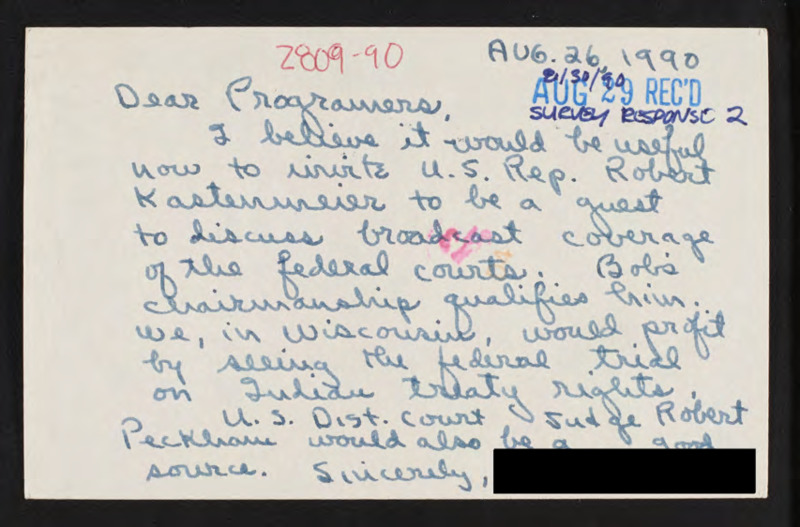 2809-90
AUG. 26, 1990
8/30/90
AUG 29 REC'D
SURVEY RESPONSE 2
Dear Programers,
I believe it would be useful
now to invite U.S. Rep. Robert
Kastenmeier to be a guest
to discuss broadcast coverage
of the federal courts. Bob's
chairmanship qualifies him.
We, in Wisconsin, would profit
by seeing the federal trial
on Indian treaty rights.
U.S. Dist. Court Judge Robert
Peckham would also be a good
source. Sincerely,